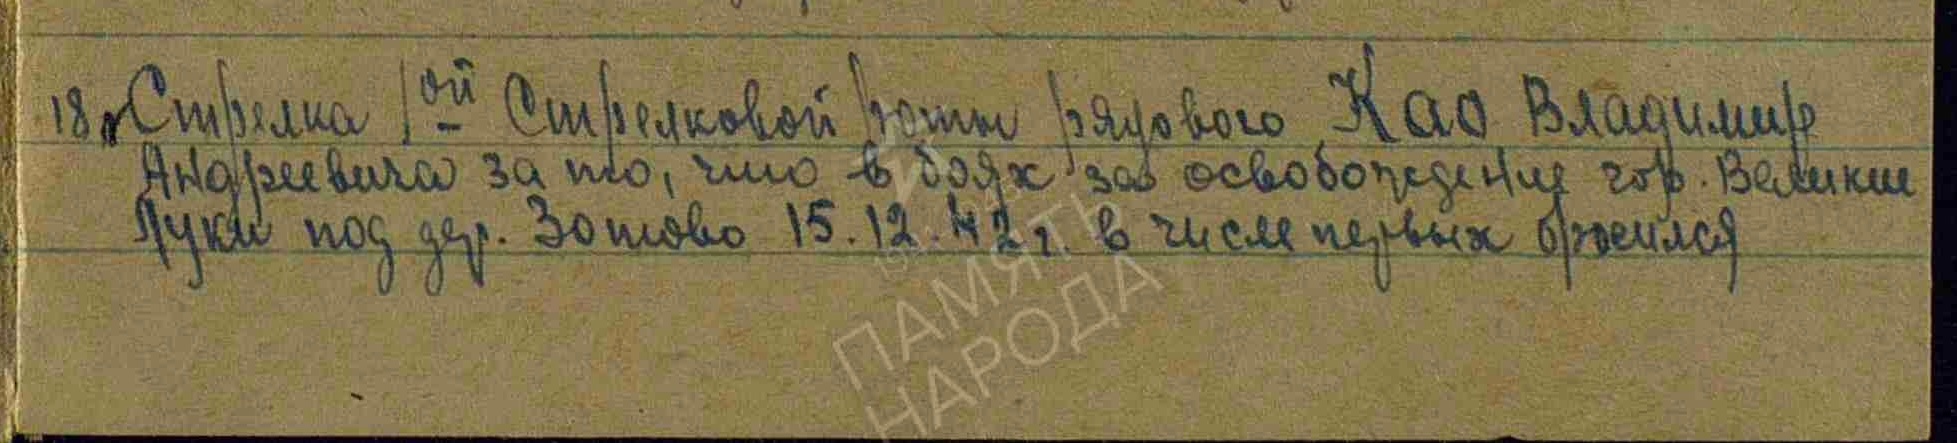 18. Стрелка 1ой Стрелковой роты рядового Као Владимир
Андреевича за то, что в боях за освобождение гор. Великие
Луки под дер. Зотово 15.12.42 г. в числе первых бросился
ПАМЯТЬ
НАРОДА